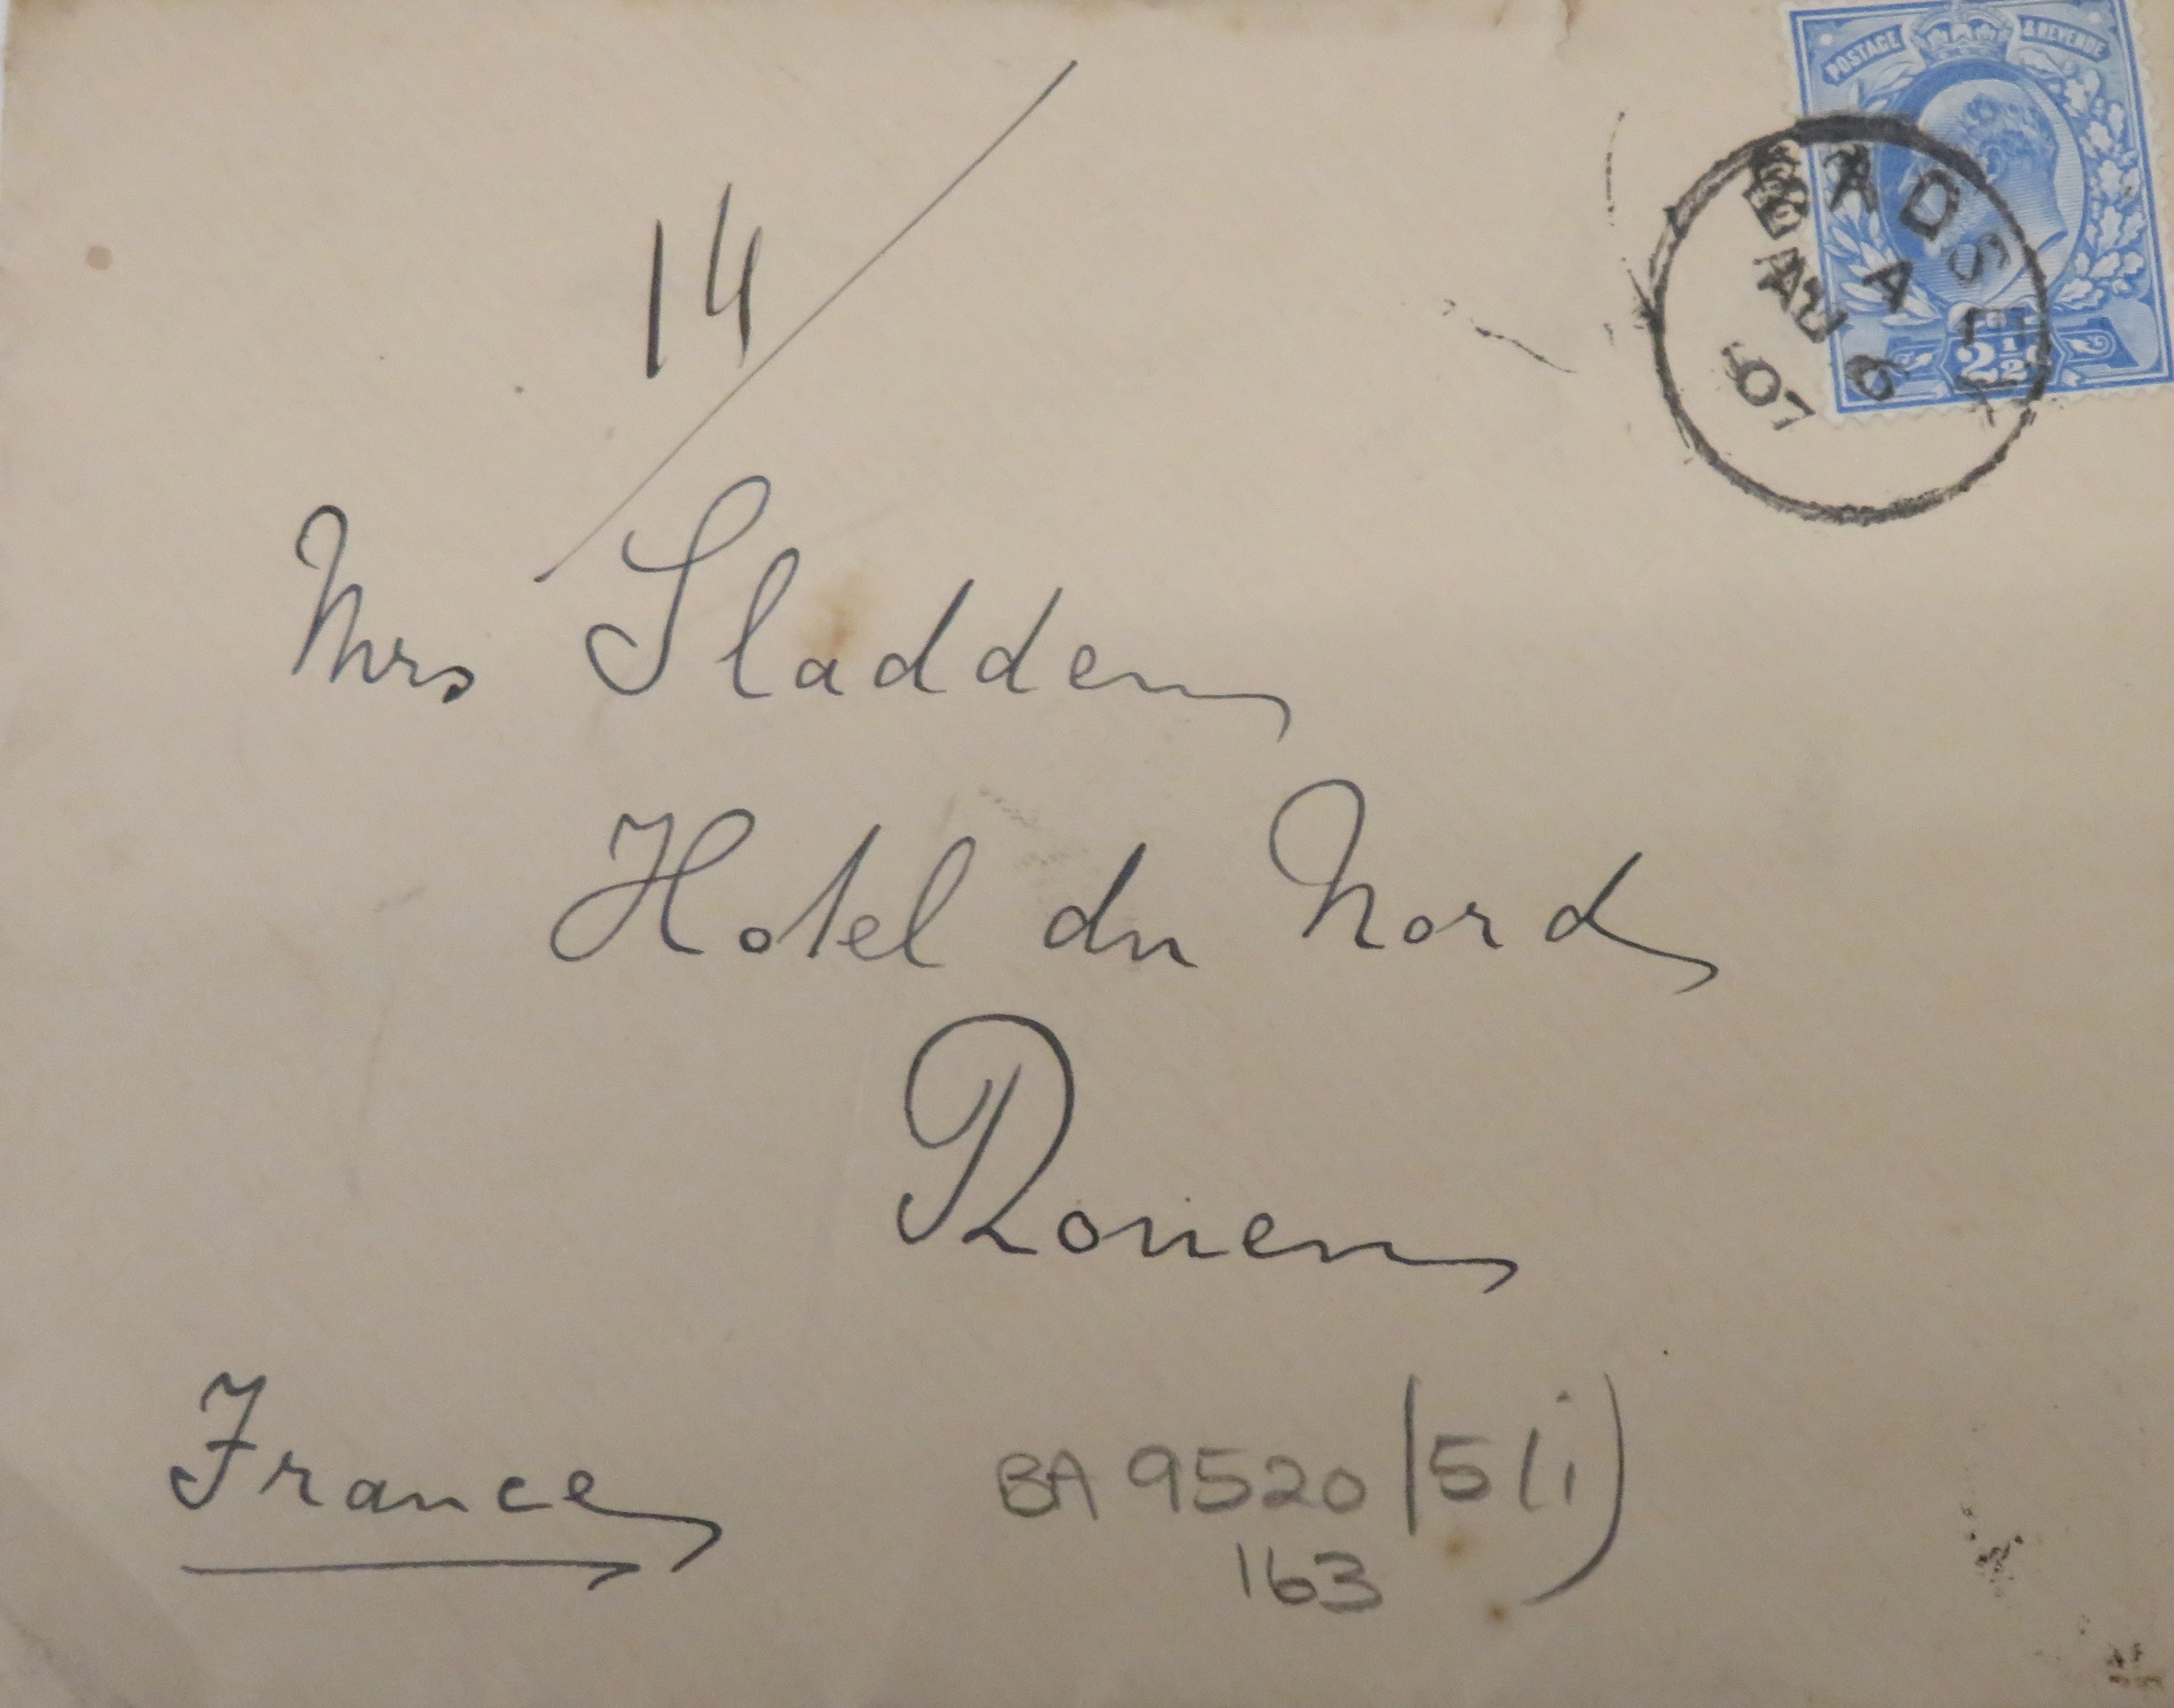 POSTAGE & REVENUE
BADSEY
A
AU 6
07
2½
14
Mrs Sladden
Hotel du Nord
Rouen
France
BA 9520/5(i)
163